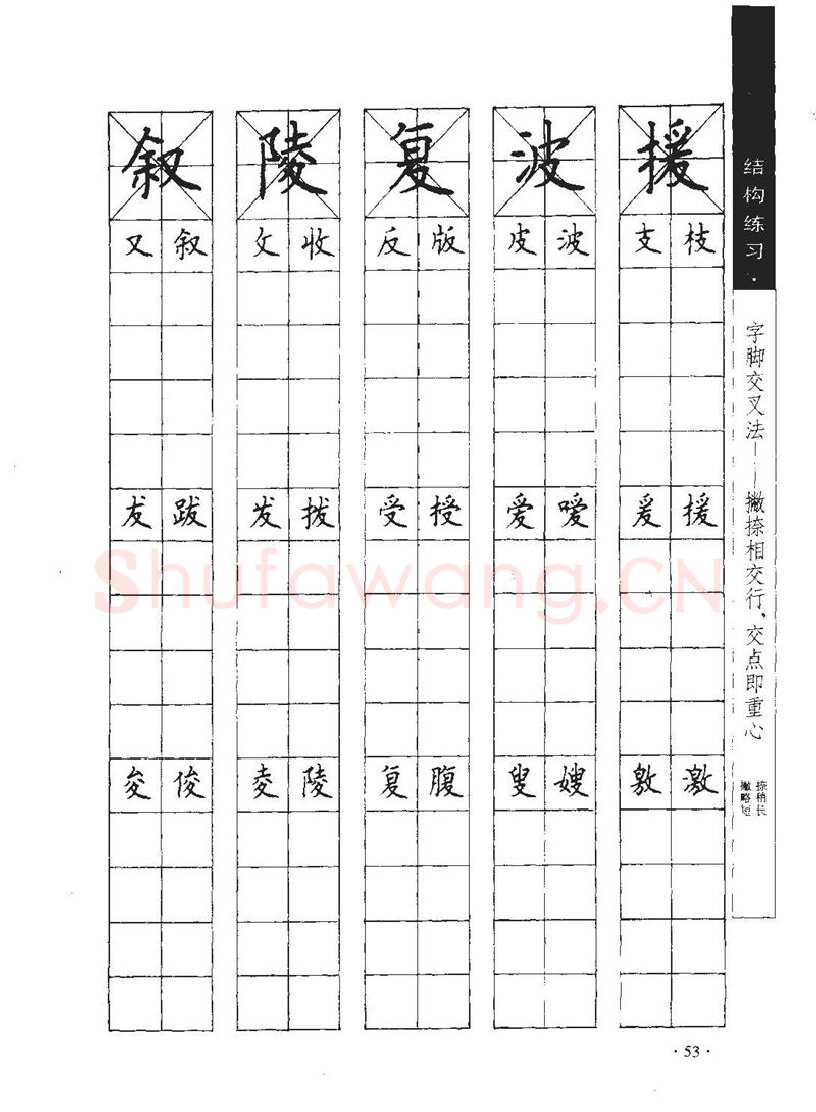 结构练习·
字脚交叉法——撇捺相交行、交点即重心
捺稍长
撇略短
叙 陵 复 波 援
又 叙 攵 收 反 版 皮 波 支 枝
犮 跋 发 拨 受 授 爱 嗳 爰 援
夋 俊 夌 陵 复 腹 叟 嫂 敫 激
Shufawang.CN
·53·